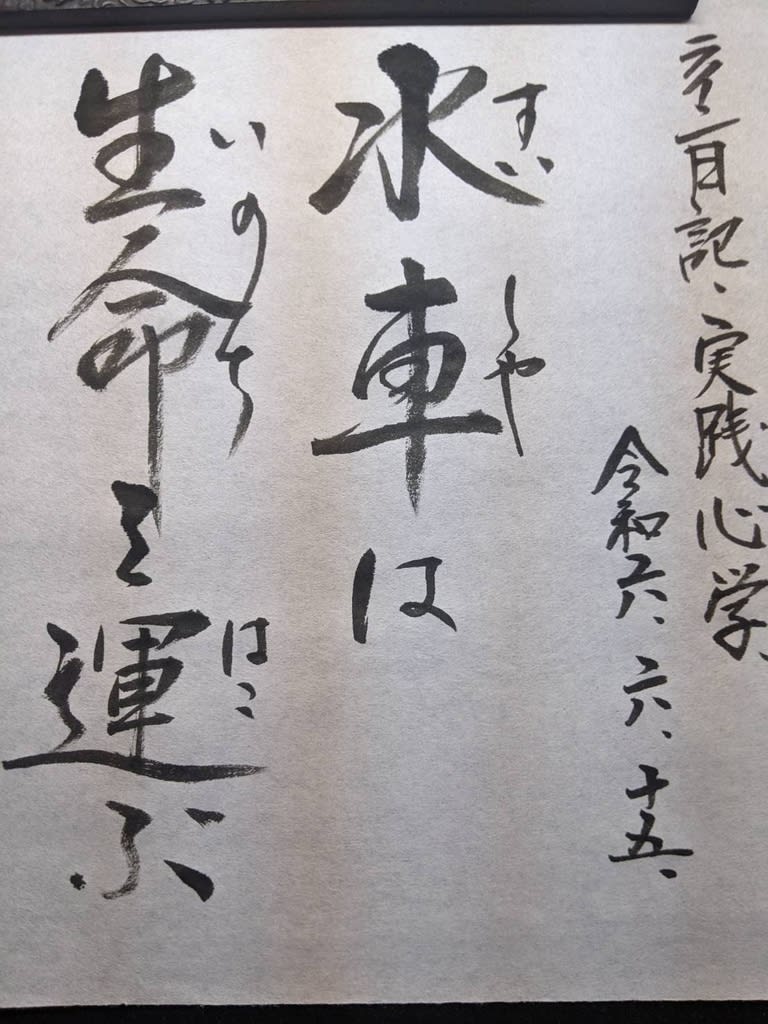 日記、実践心学、
令和六、六、十五、
すいしや
水車は
いのちはこ
生命を運ぶ